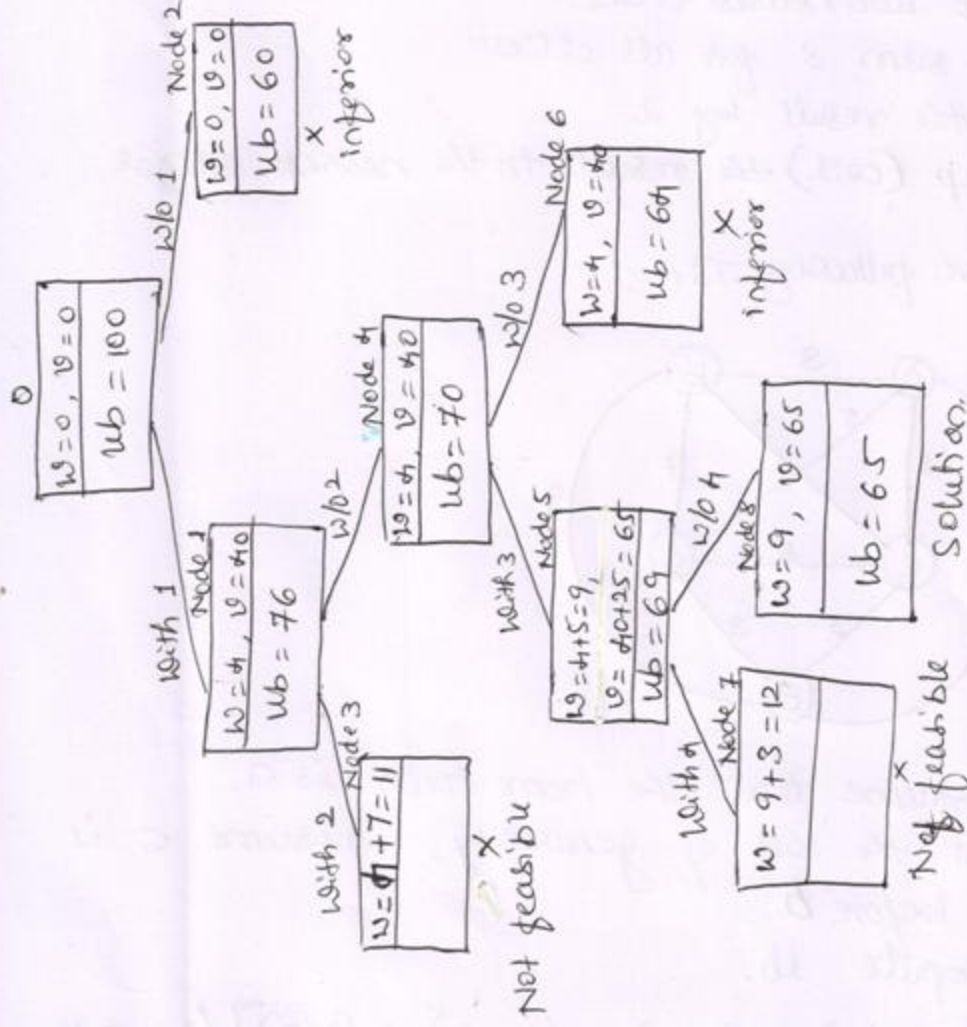 0
w=0, v=0
ub = 100
With 1
W/o 1
Node 1
w=4, v=40
ub = 76
Node 2
w=0, v=0
ub = 60
x
inferior
With 2
W/o 2
Node 3
w=4+7=11
x
Not feasible
Node 4
w=4, v=40
ub=70
With 3
W/o 3
Node 5
w=4+5=9,
v=40+25=65
ub=69
Node 6
w=4, v=40
ub=64
x
inferior
With 4
W/o 4
Node 7
w=9+3=12
x
Not feasible
Node 8
w=9, v=65
ub=65
Solution.